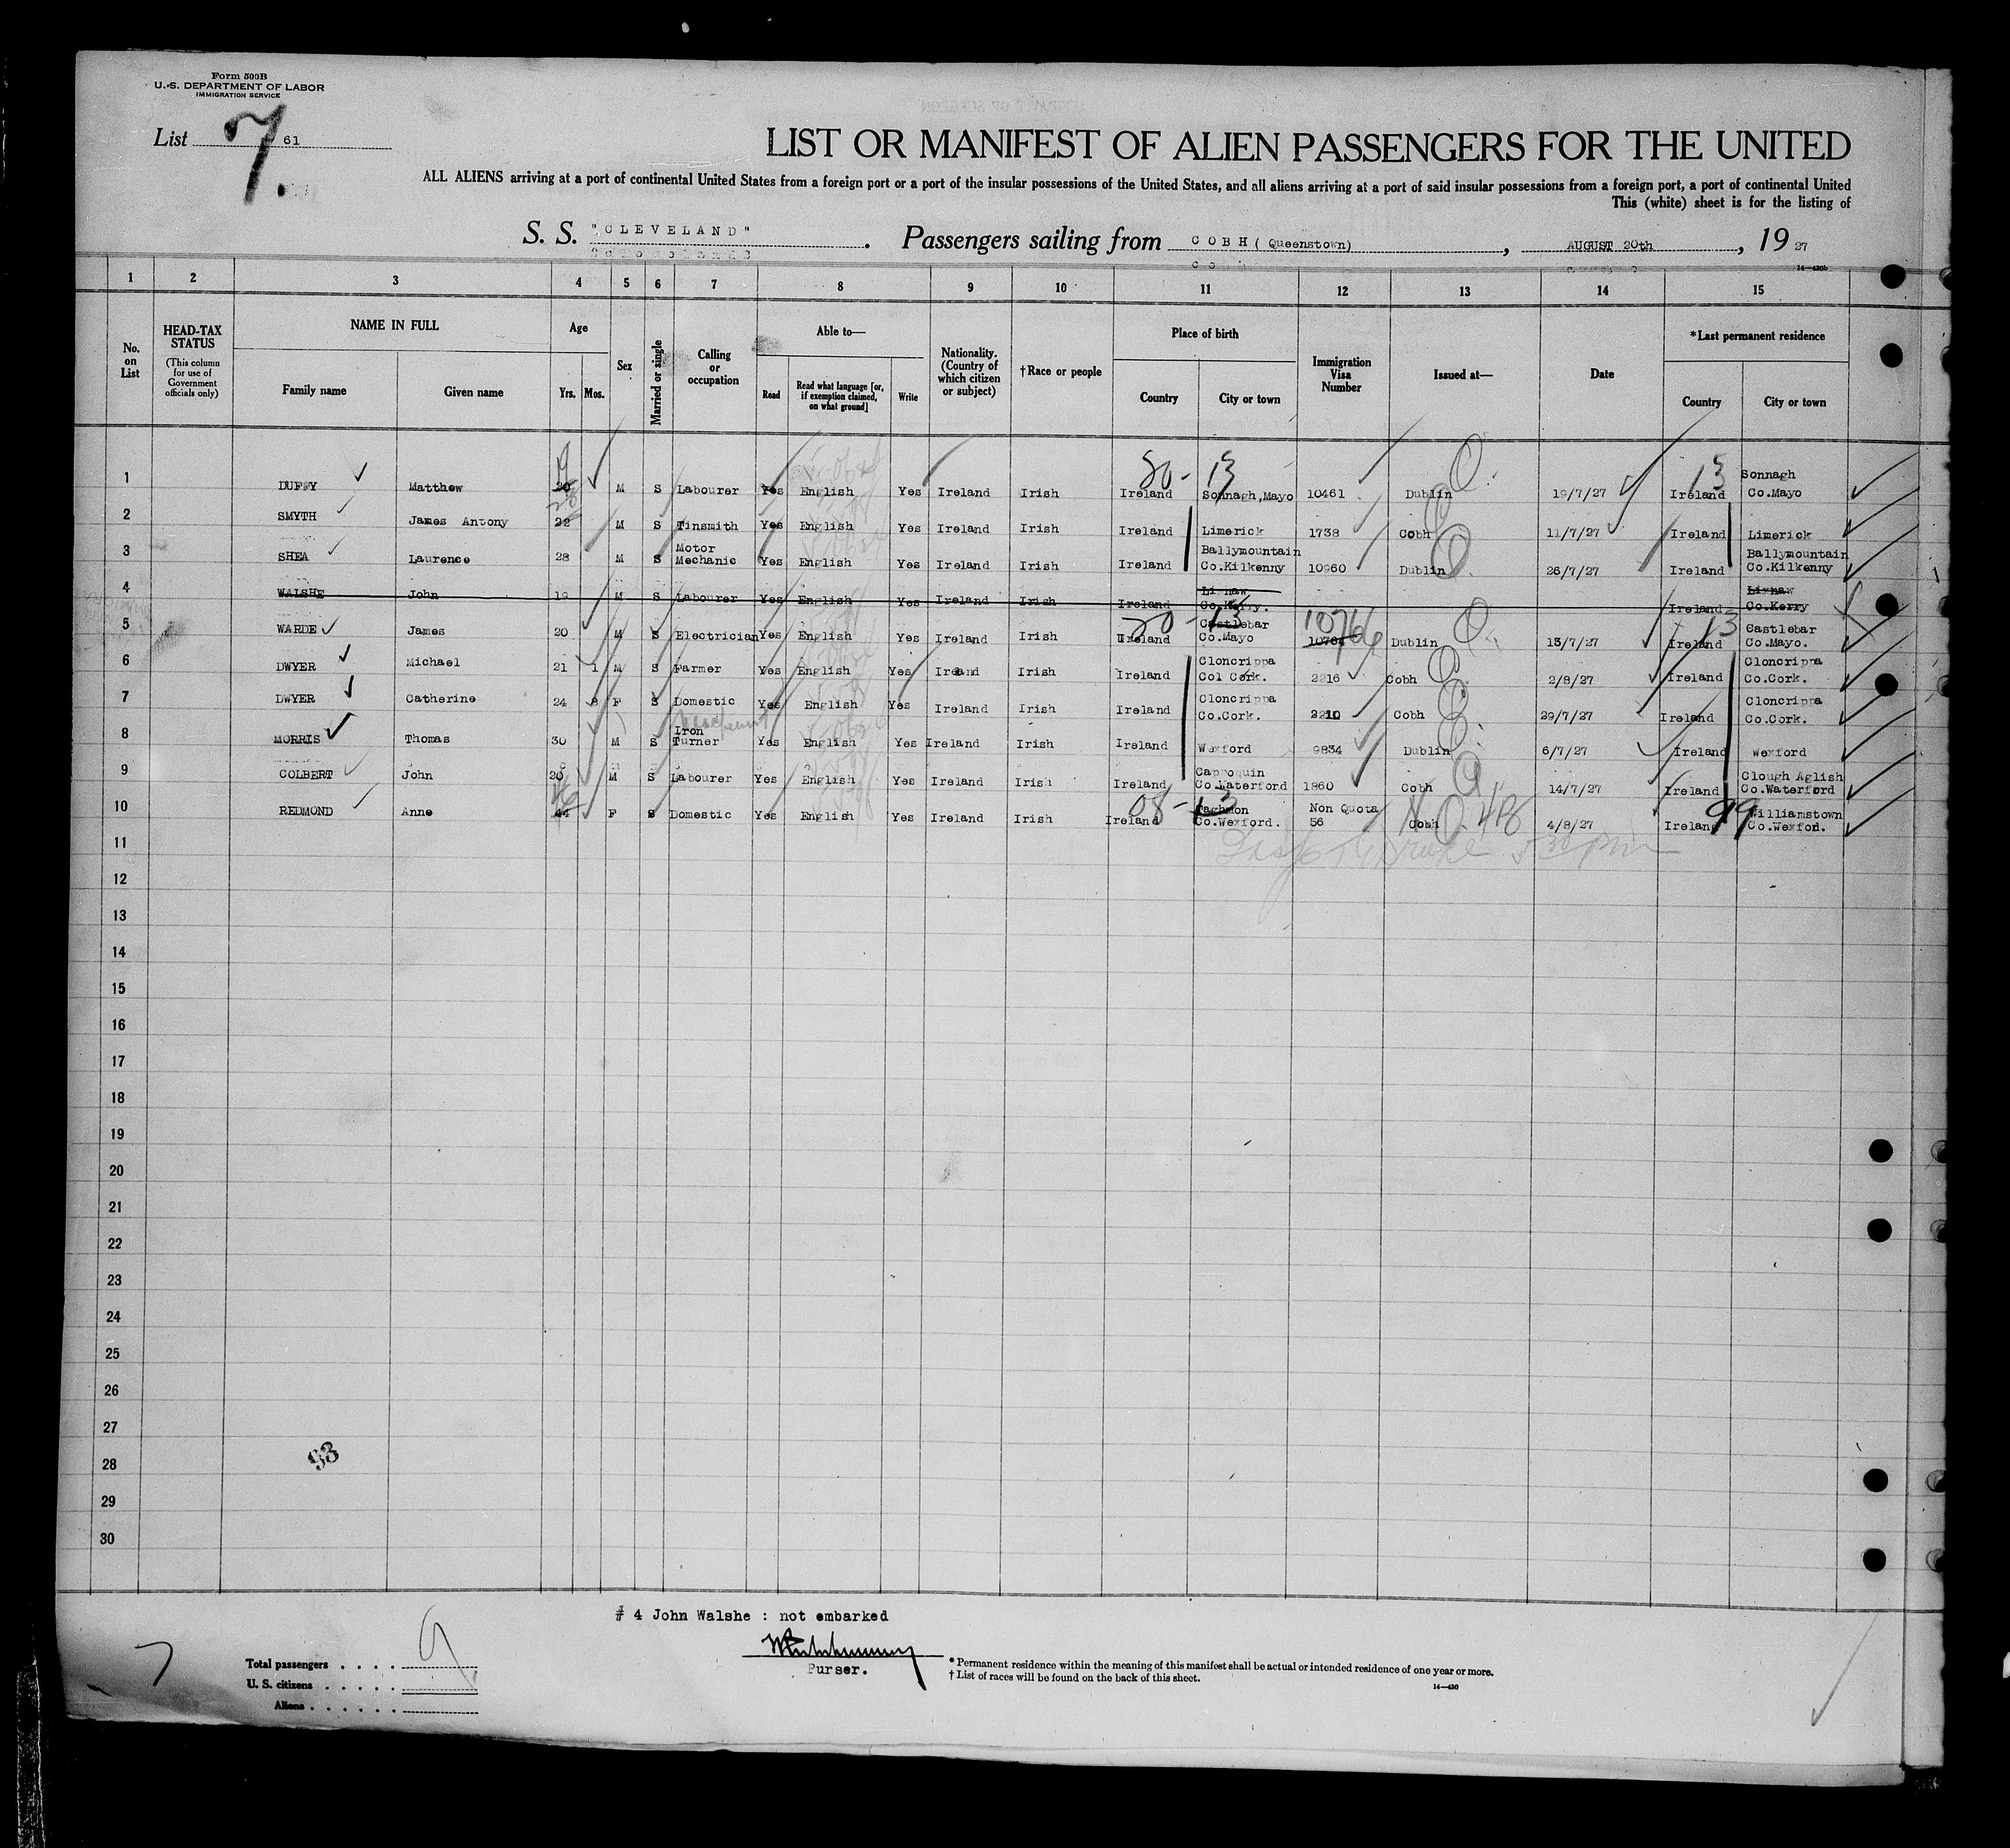 Form 500B
U. S. DEPARTMENT OF LABOR
IMMIGRATION SERVICE
List 7. 61
LIST OR MANIFEST OF ALIEN PASSENGERS FOR THE UNITED
ALL ALIENS arriving at a port of continental United States from a foreign port or a port of the insular possessions of the United States, and all aliens arriving at a port of said insular possessions from a foreign port, a port of continental United
This (white) sheet is for the listing of
S. S. "CLEVELAND" . Passengers sailing from COBH ( Queenstown) , AUGUST 20th , 19 27
14—430b
1 2 3 4 5 6 7 8 9 10 11 12 13 14 15
No. on List
HEAD-TAX STATUS (This column for use of Government officials only)
NAME IN FULL Family name Given name
Age Yrs. Mos.
Sex
Married or single
Calling or occupation
Able to— Read Read what language [or, if exemption claimed, on what ground] Write
Nationality. (Country of which citizen or subject)
†Race or people
Place of birth Country City or town
Immigration Visa Number
Issued at—
Date
*Last permanent residence Country City or town
1 DUFFY Matthew 20 M S Labourer Yes English Yes Ireland Irish 20-13 Ireland Sonnagh,Mayo 10461 Dublin 19/7/27 13 Ireland Sonnagh Co.Mayo
2 SMYTH James Antony 22 M S Tinsmith Yes English Yes Ireland Irish Ireland Limerick 1738 Cobh 11/7/27 Ireland Limerick
3 SHEA Laurence 28 M S Motor Mechanic Yes English Yes Ireland Irish Ireland Ballymountain Co.Kilkenny 10960 Dublin 26/7/27 Ireland Ballymountain Co.Kilkenny
4 WALSHE John 19 M S Labourer Yes English Yes Ireland Irish Ireland Co.Kerry. Ireland Co.Kerry
5 WARDE James 20 M S Electrician Yes English Yes Ireland Irish 20-13 Ireland Castlebar Co.Mayo 10766 10764 Dublin 13/7/27 13 Ireland Castlebar Co.Mayo.
6 DWYER Michael 21 1 M S Farmer Yes English Yes Ireland Irish Ireland Cloncrippa Col Cork. 2216 Cobh 2/8/27 Ireland Cloncrippa Co.Cork.
7 DWYER Catherine 24 8 F S Domestic Yes English Yes Ireland Irish Ireland Cloncrippa Co.Cork. 2210 Cobh 29/7/27 Ireland Cloncrippa Co.Cork.
8 MORRIS Thomas 30 M S Iron Turner Yes English Yes Ireland Irish Ireland Wexford 9834 Dublin 6/7/27 Ireland Wexford
9 COLBERT John 20 M S Labourer Yes English Yes Ireland Irish Ireland Cappoquin Co.Waterford 1860 Cobh 14/7/27 Ireland Clough Aglish Co.Waterford
10 REDMOND Anne 44 F S Domestic Yes English Yes Ireland Irish 08-13 Ireland Taghmon Co.Wexford. Non Quota 56 Cobh 4/8/27 Ireland 99 Williamstown Co.Wexford.
11
12
13
14
15
16
17
18
19
20
21
22
23
24
25
26
27
28
29
30
93
# 4 John Walshe : not embarked
Purser.
7
Total passengers . . . . 9
U. S. citizens . . . . .
Aliens . . . . . .
* Permanent residence within the meaning of this manifest shall be actual or intended residence of one year or more.
† List of races will be found on the back of this sheet.
14—430